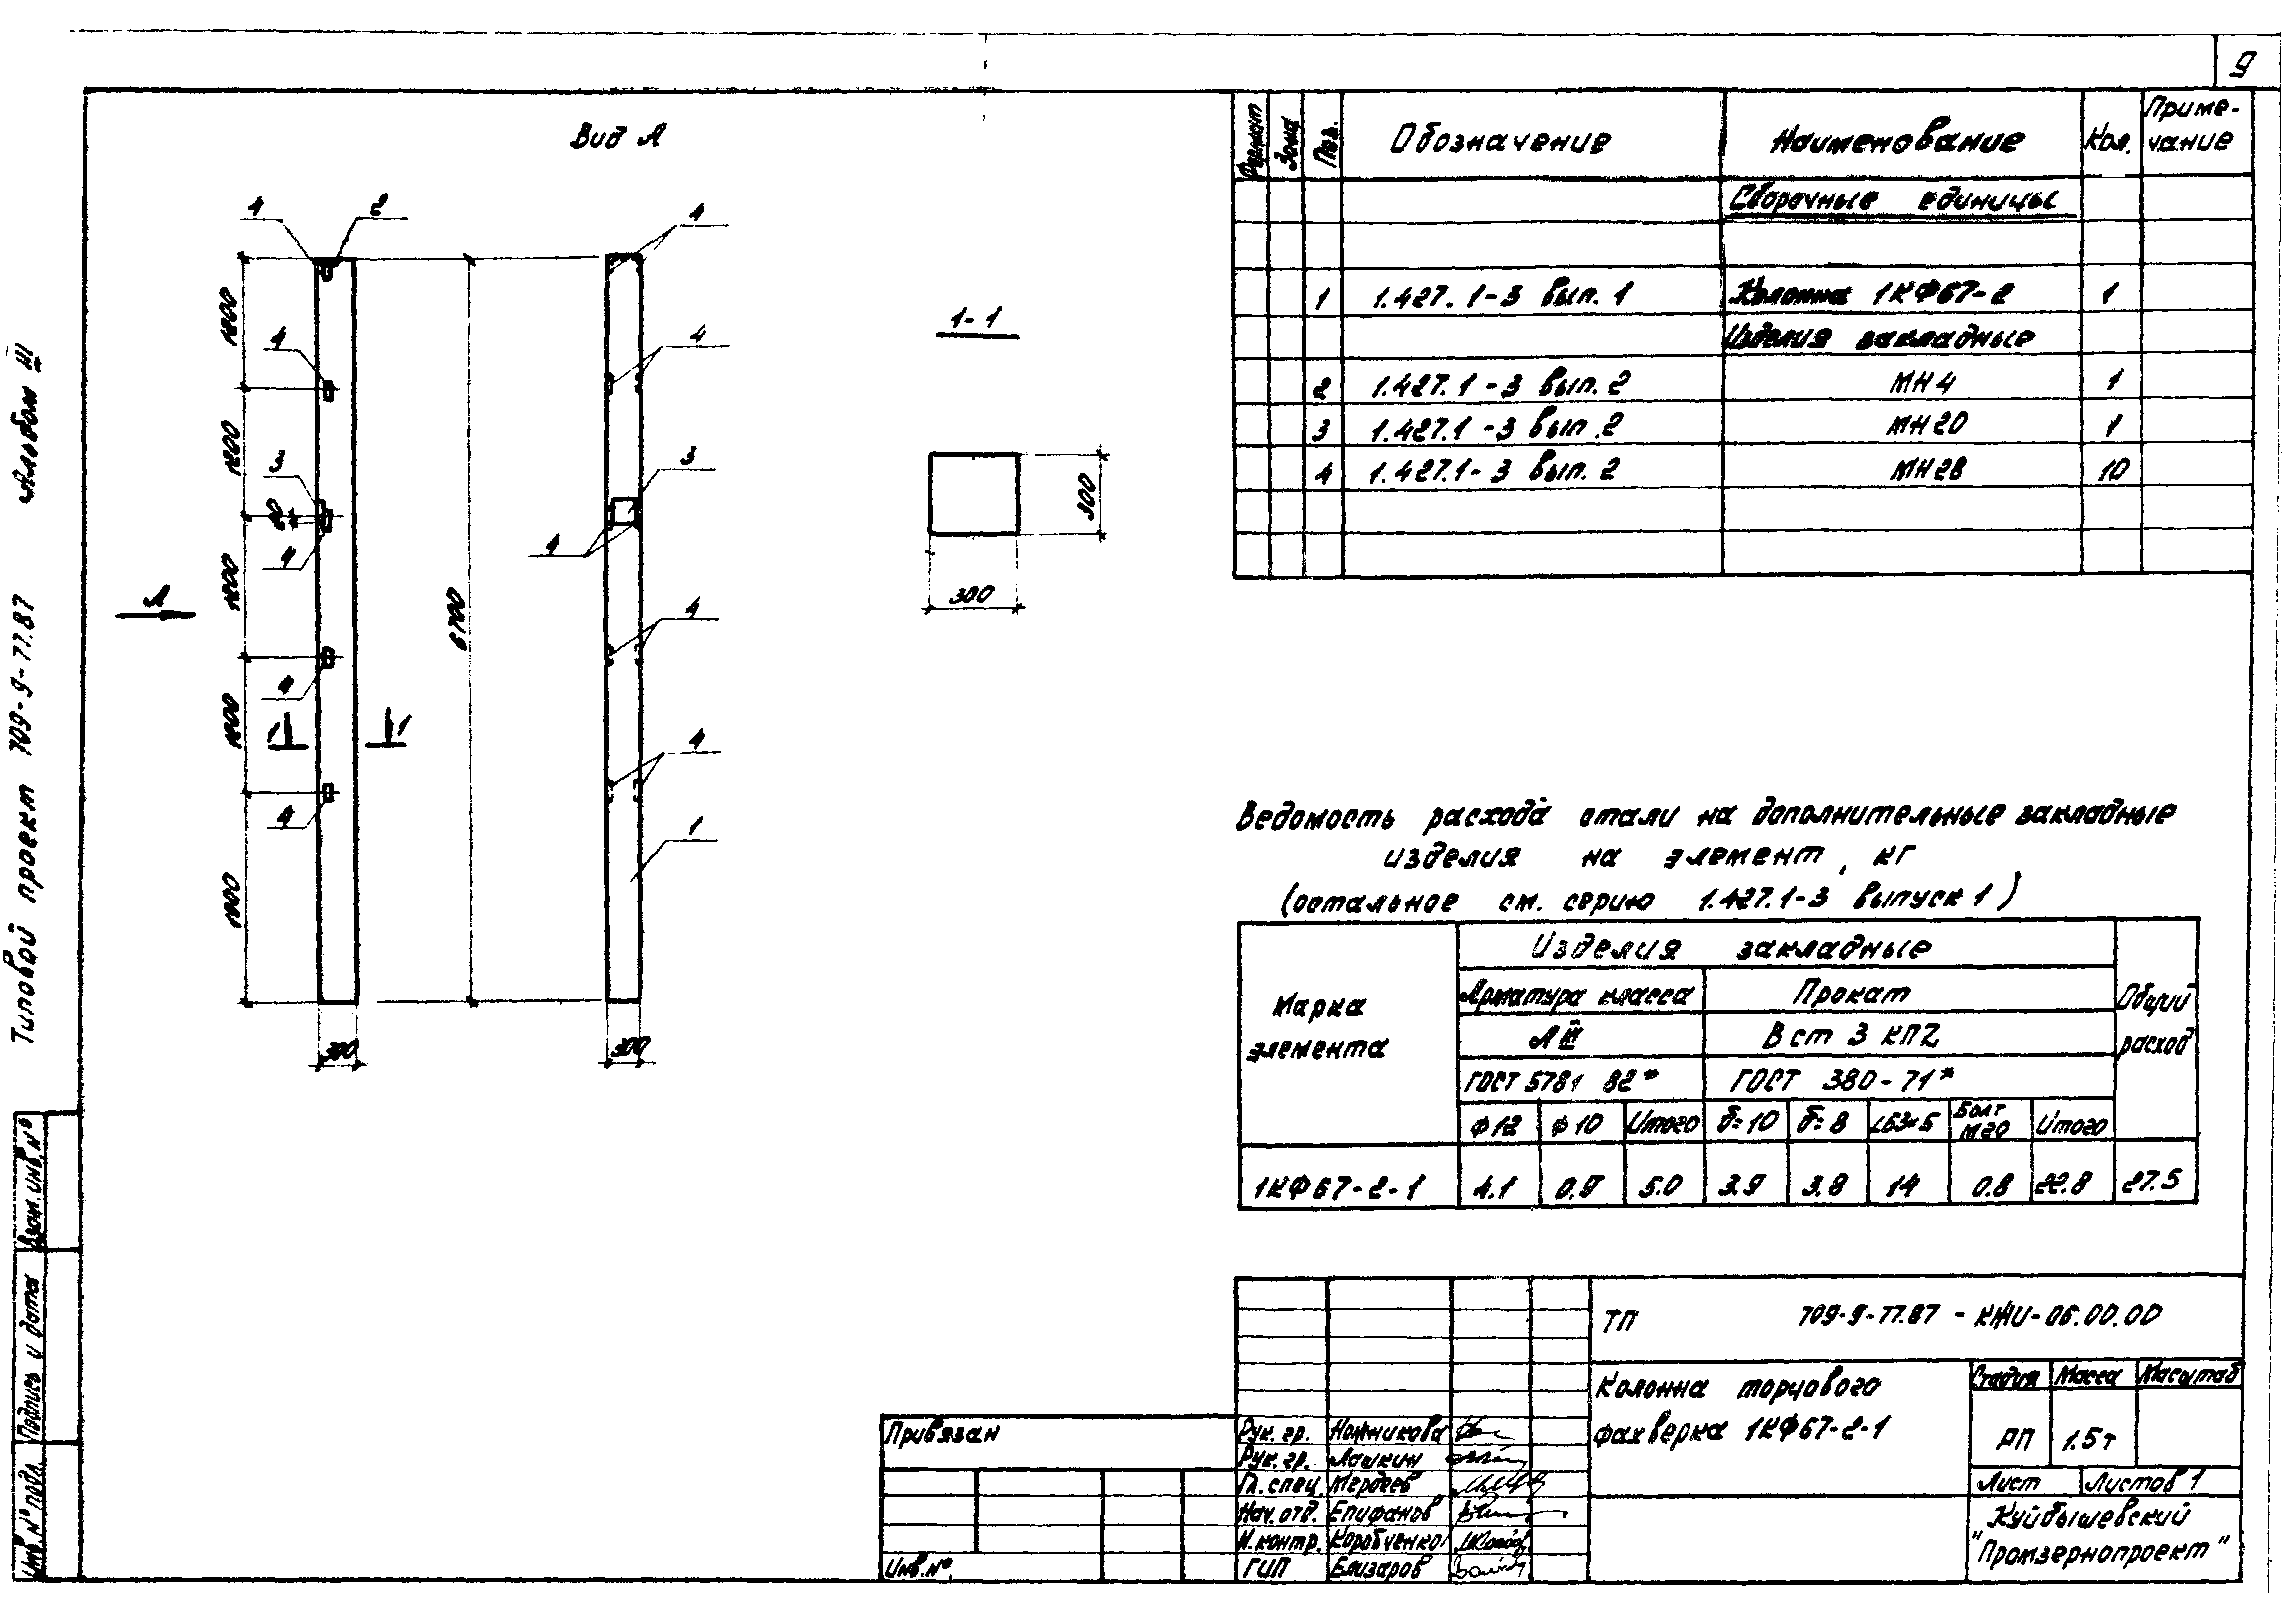 9
Вид А
4
2
4
1200
4
4
1200
3
3
20
4
4
1200
А
6700
4
4
1800
1
1
4
4
1
1900
300
300
1-1
300
300
Типовой проект 709-9-77.87 Альбом III
Взам. инв. №
Подпись и дата
Инв. № подл.
Формат Зона Поз. Обозначение Наименование Кол. Приме-
чание
Сборочные единицы
1 1.427.1-3 вып. 1 Колонна 1КФ67-2 1
Изделия закладные
2 1.427.1-3 вып. 2 МН4 1
3 1.427.1-3 вып. 2 МН20 1
4 1.427.1-3 вып. 2 МН28 10
Ведомость расхода стали на дополнительные закладные
изделия на элемент, кг
(остальное см. серию 1.427.1-3 выпуск 1)
Марка
элемента
Изделия закладные
Общий
расход
Арматура класса Прокат
АIII В ст 3 КП2
ГОСТ 5781 82* ГОСТ 380-71*
Ф12 Ф10 Итого δ=10 δ=8 L63×5 Болт М20 Итого
1КФ67-2-1 4.1 0.9 5.0 3.9 3.8 14 0.8 22.8 27.5
ТП 709-9-77.87 - КЖИ-06.00.00
Колонна торцового
фахверка 1КФ67-2-1
Стадия Масса Масштаб
РП 1.5т
Лист Листов 1
Куйбышевский
"Промзернопроект"
Привязан
Инв. №
Рук. гр. Ножникова
Рук. гр. Лашкин
Гл. спец. Мердеев
Нач. отд. Епифанов
Н. контр. Коробченко
ГИП Елизаров